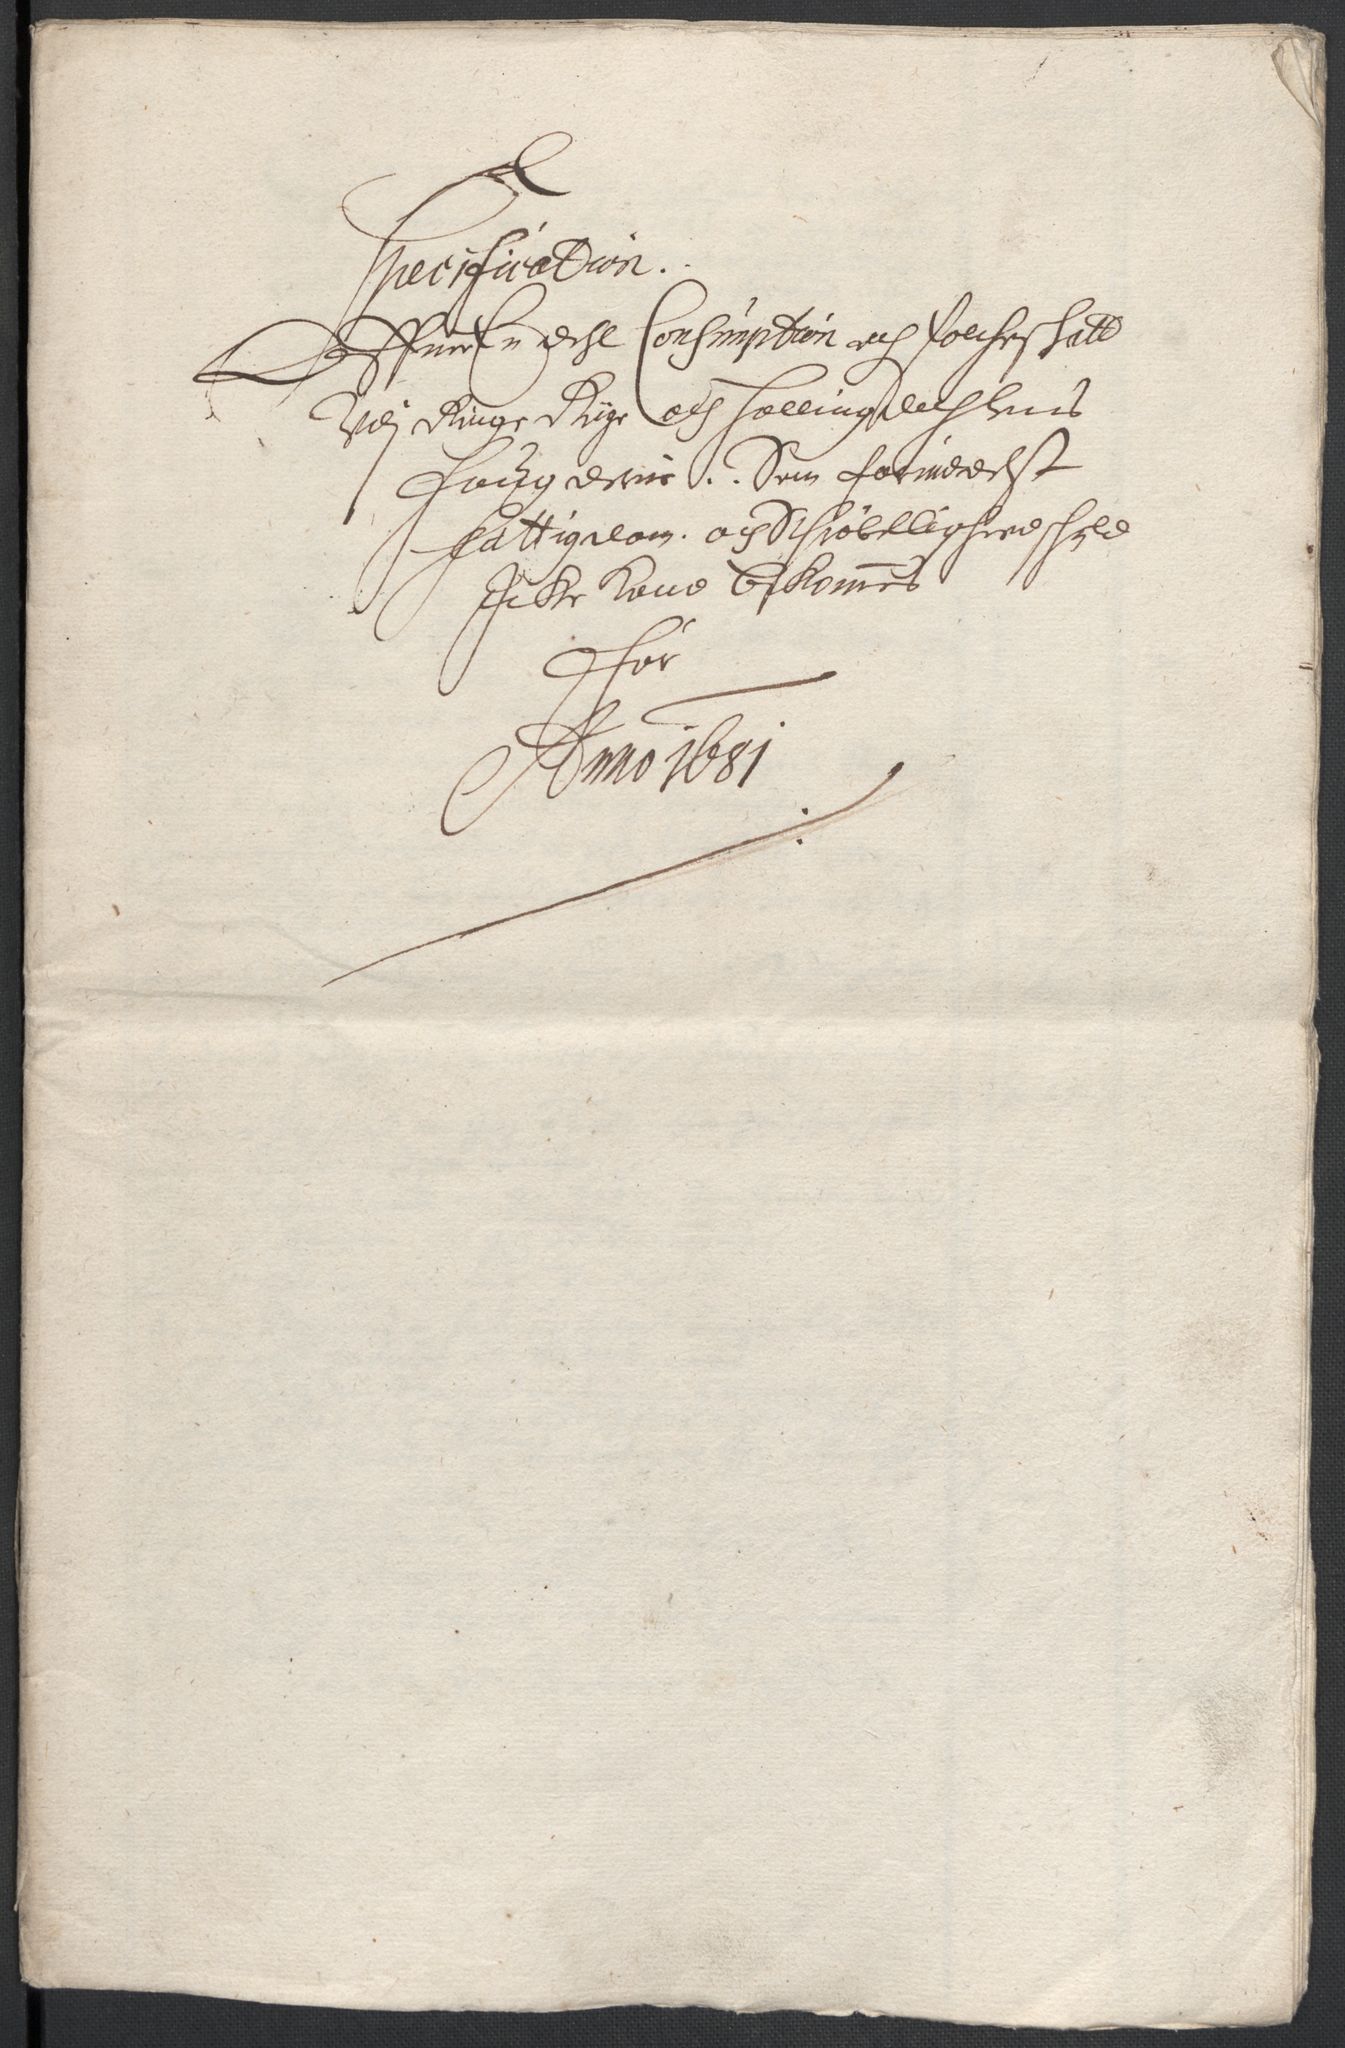 Specification.
Offuer En dehl Consumption och folcheschatt
Vdj Ringe Rige och Hallingdahlens
Fougderie. Som formedelst
fattigdom. och Schrøbelligheds schyld
Icke Kand bekommes
for
Anno 1681